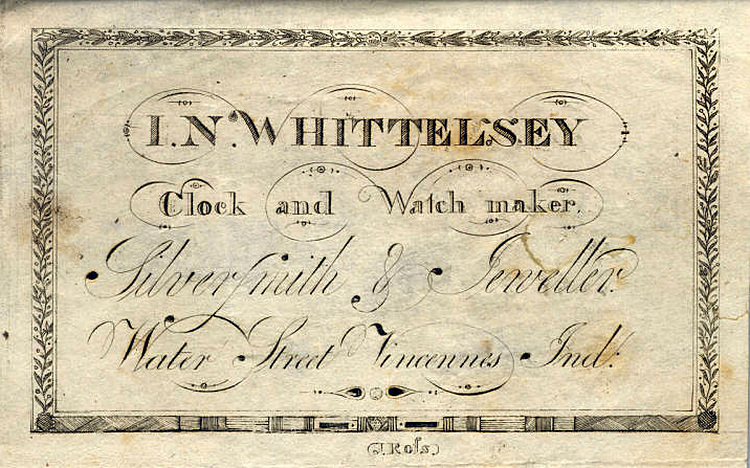 I.N. WHITTELSEY
Clock and Watch maker.
Silverſmith & Jeweller.
Water Street Vincennes Ind.
(J. Roſs.)